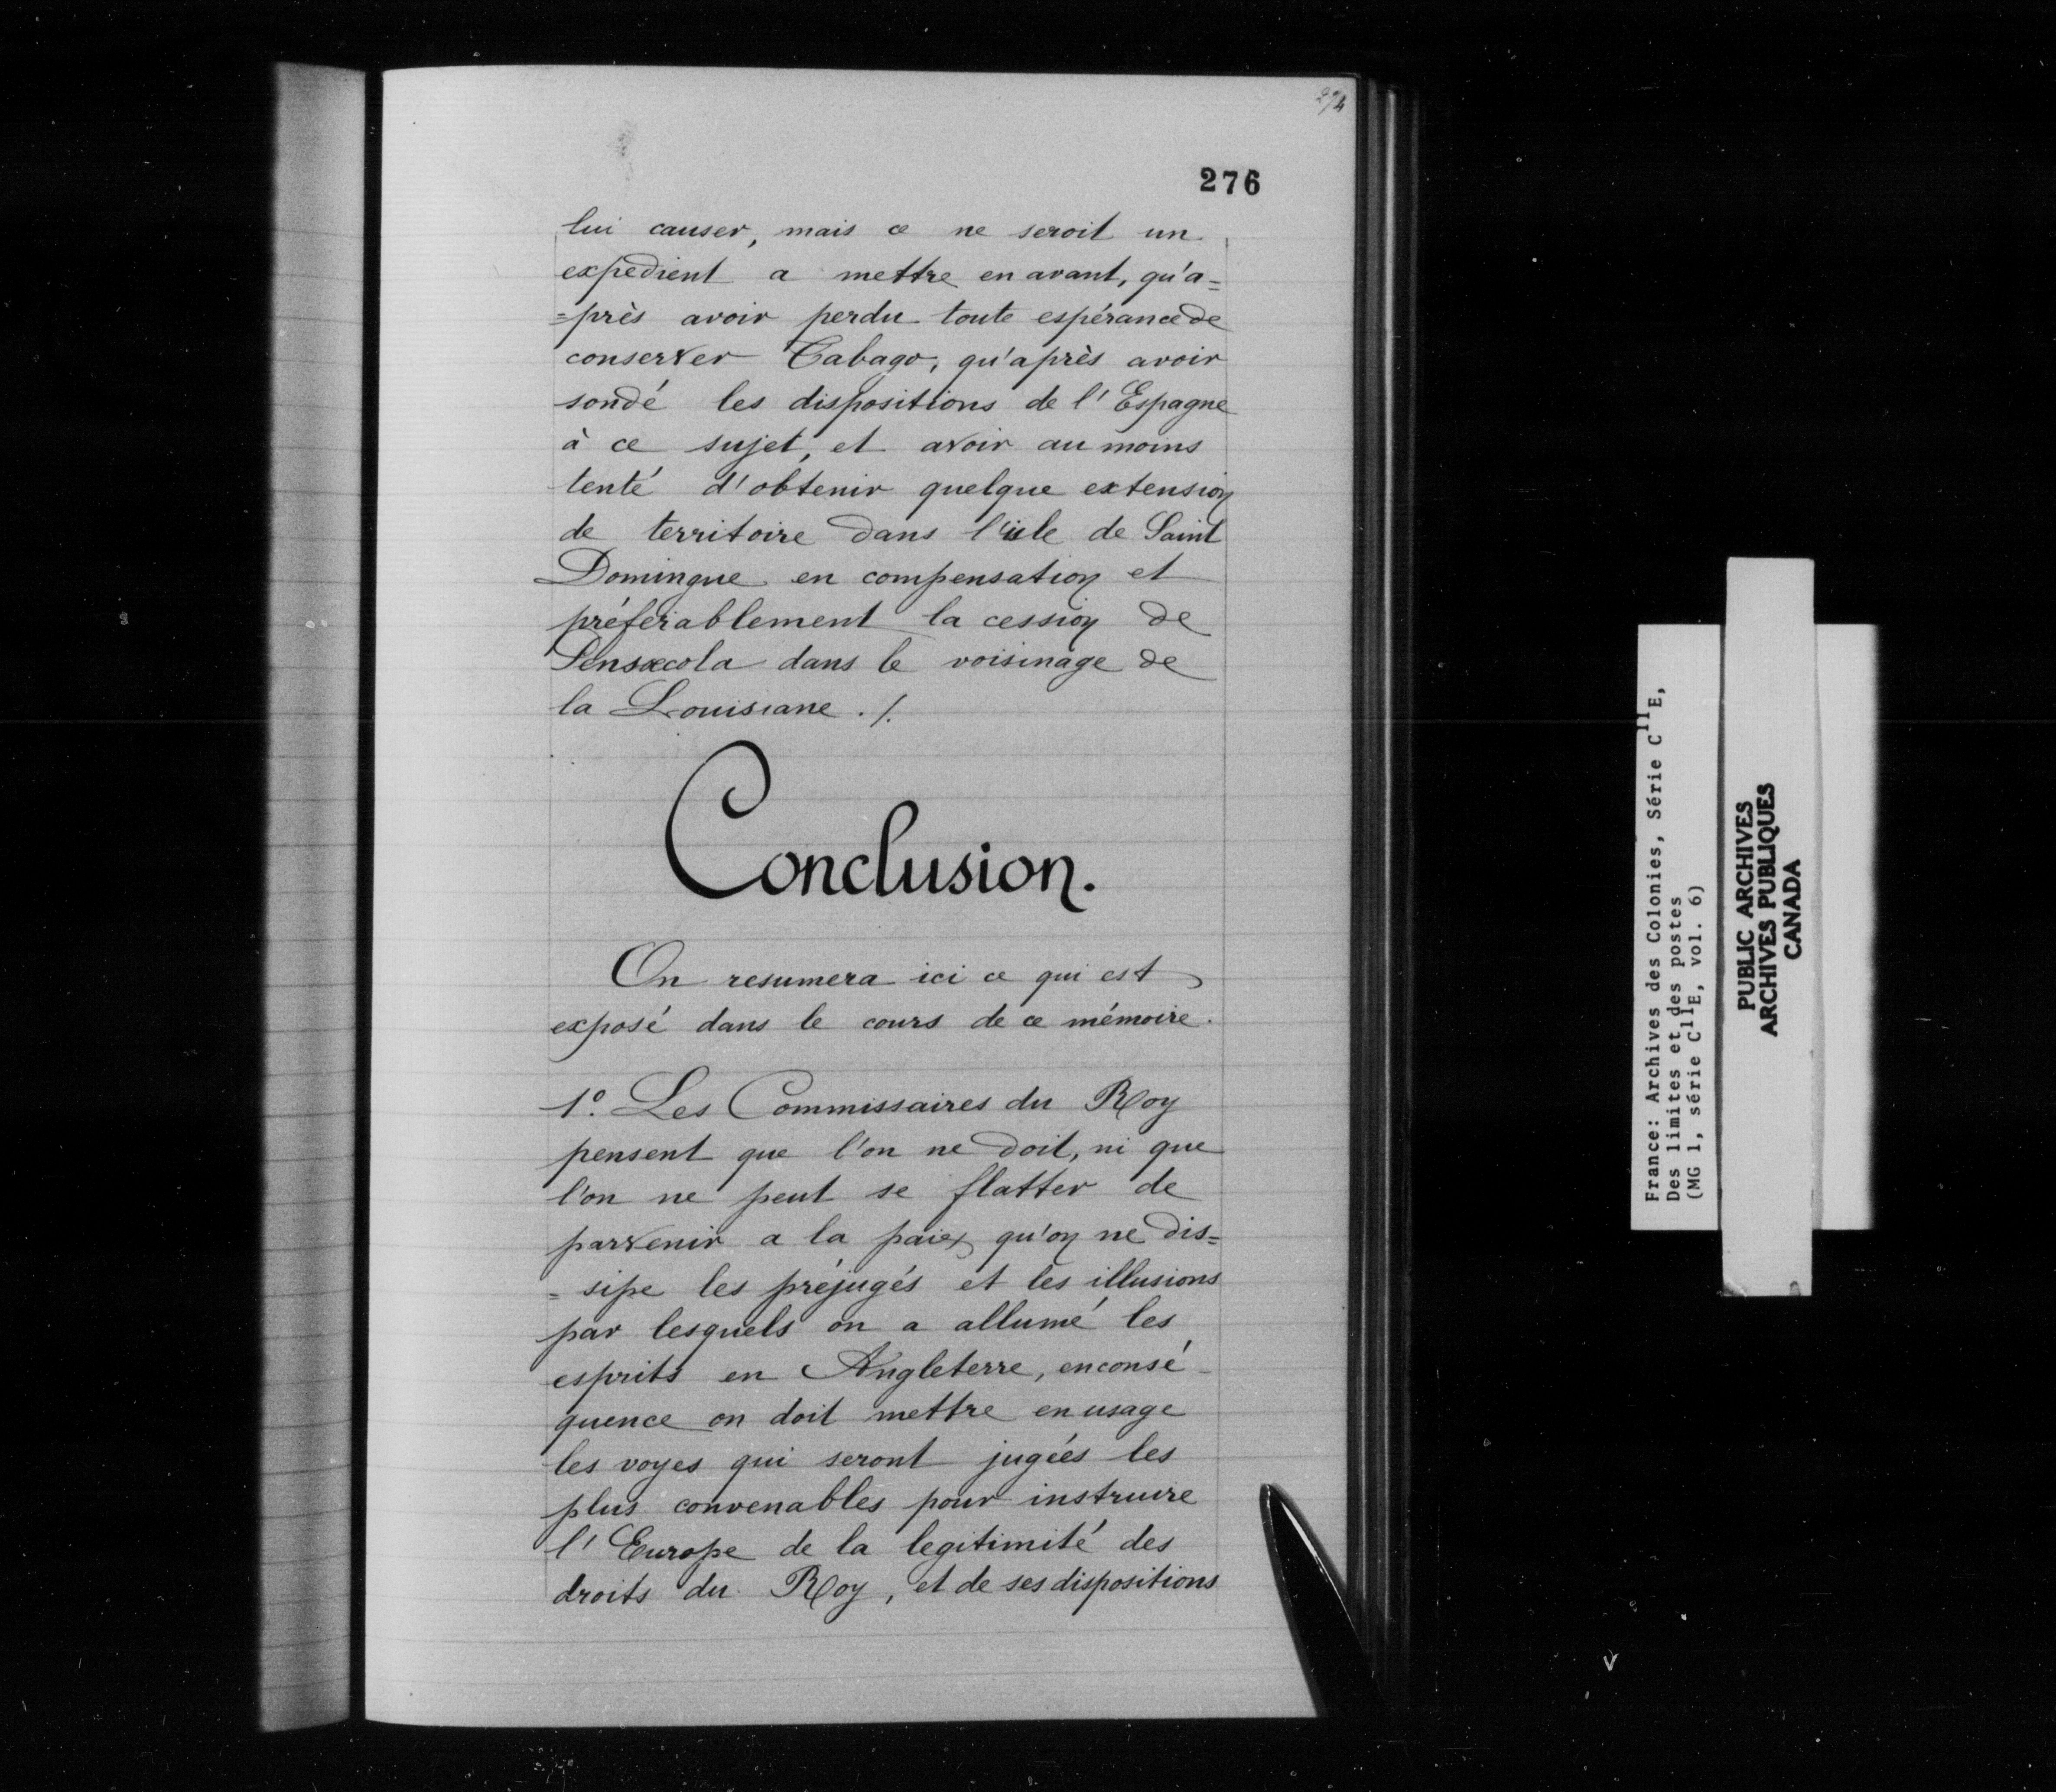 274
276
lui causer, mais ce ne seroit un
expedient a mettre en avant, qu'a=
=près avoir perdu toute espérance de
conserver Tabago, qu'après avoir
sondé les dispositions de l'Espagne
à ce sujet, et avoir au moins
tenté d'obtenir quelque extension
de territoire dans l'isle de Saint
Domingue en compensation et
préférablement la cession de
Pensacola dans le voisinage de
la Louisiane ./.
Conclusion.
On resumera ici ce qui est
exposé dans le cours de ce mémoire.
1º. Les Commissaires du Roy
pensent que l'on ne doit, ni que
l'on ne peut se flatter de
parvenir a la paix qu'on ne dis=
=sipe les préjugés et les illusions
par lesquels on a allumé les
esprits en Angleterre, en consé-
quence on doit mettre en usage
les voyes qui seront jugées les
plus convenables pour instruire
l'Europe de la legitimité des
droits du Roy, et de ses dispositions
France: Archives des Colonies, Série C11E,
Des limites et des postes
(MG 1, série C11E, vol. 6)
PUBLIC ARCHIVES
ARCHIVES PUBLIQUES
CANADA